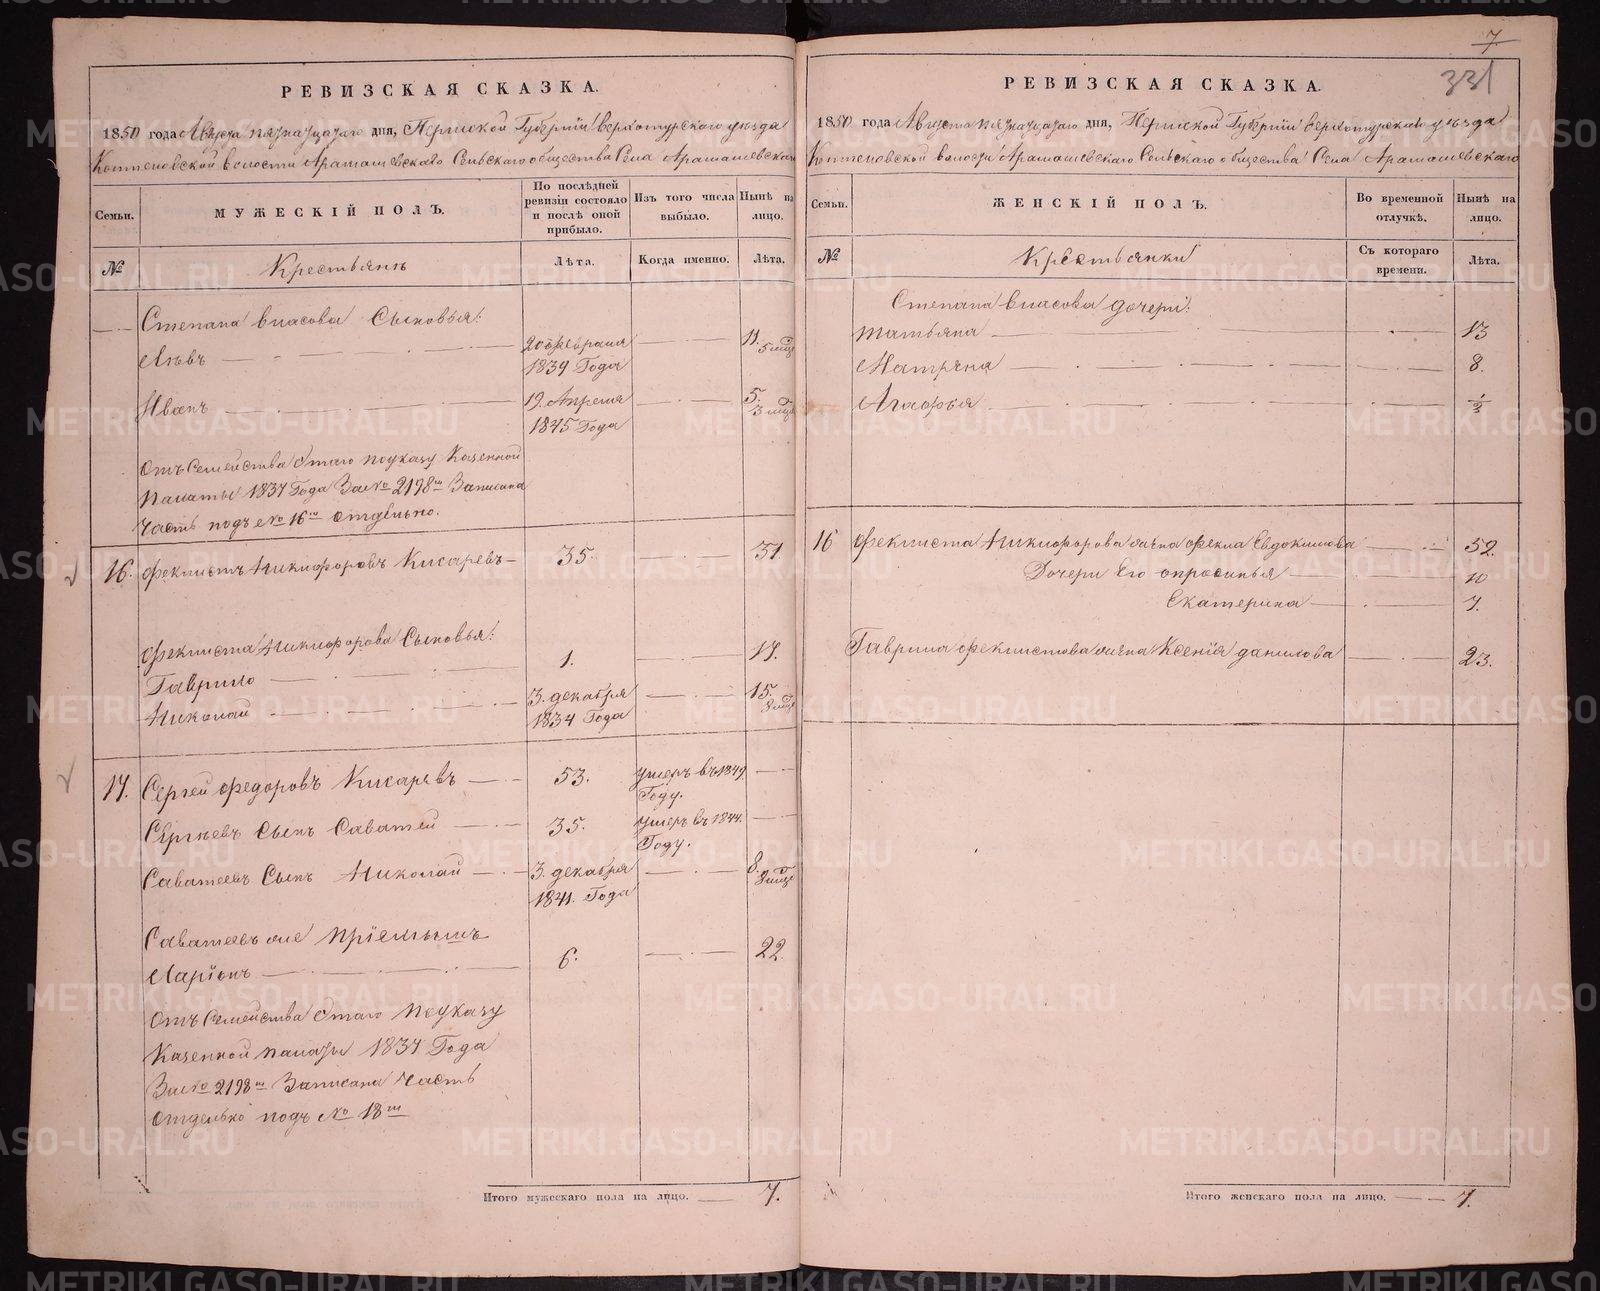 РЕВИЗСКАЯ СКАЗКА.
1850 года Августа пятнатцатаго дня, Пермской Губернїи верхотурскаго уезда
Коптеловской волости Арамашевскаго Сельскаго общества Села Арамашевскаго
Семьи. МУЖЕСКІЙ ПОЛЪ. По послѣдней ревизіи состояло и послѣ оной прибыло. Изъ того числа выбыло. Нынѣ на лицо.
№ Крестьянъ Лѣта. Когда именно. Лѣта.
Степана власова Сыновья:
Львъ 20 февраля 1839 Года 11. 5 мцв
Иванъ 19. Апреля 1845 Года 5. 3 мцв
Отъ Семейства Этаго поуказу Казенной
Палаты 1837 Года За № 2198м Записана
Часть подъ № 16м отдельно.
16. Феклистъ Никифоровъ Кисаревъ 35. 51.
Феклиста Никифорова Сыновья:
Гаврило 1. 17.
Николай 3. декабря 1834 Года 15. 8 мцв
17. Сергей Федоровъ Кисаревъ 53. умеръ въ 1849 Году.
Сергѣевъ Сынъ Саватей 35. умеръ въ 1844. Году.
Саватеевъ Сынъ Николай 3. декабря 1841. Года 8. 8 мцв
Саватеевъ же Пріемышъ
Ларіонъ 6. 22.
Отъ Семейства Этаго поуказу
Казенной палаты 1837 Года
За № 2198м Записана Часть
Отдельно подъ № 18м
Итого мужескаго пола на лицо. 7.
7
331
РЕВИЗСКАЯ СКАЗКА.
1850 года Августа пятнатцатаго дня, Пермской Губернїи верхотурскаго уезда
Коптеловской волости Арамашевскаго Сельскаго общества Села Арамашевскаго
Семьи. ЖЕНСКІЙ ПОЛЪ. Во временной отлучкѣ. Нынѣ на лицо.
№ Крестьянки Съ котораго времени. Лѣта.
Степана власова дочери:
Татьяна 13
Матрена 8.
Агафья ½
16 Феклиста Никифорова жена Фекла Евдокимова 52.
Дочери Его опросинья 10
Екатерина 7.
Гаврила Феклистова жена Ксенія данилова 23.
Итого женскаго пола на лицо. 7.
METRIKI.GASO-URAL.RU